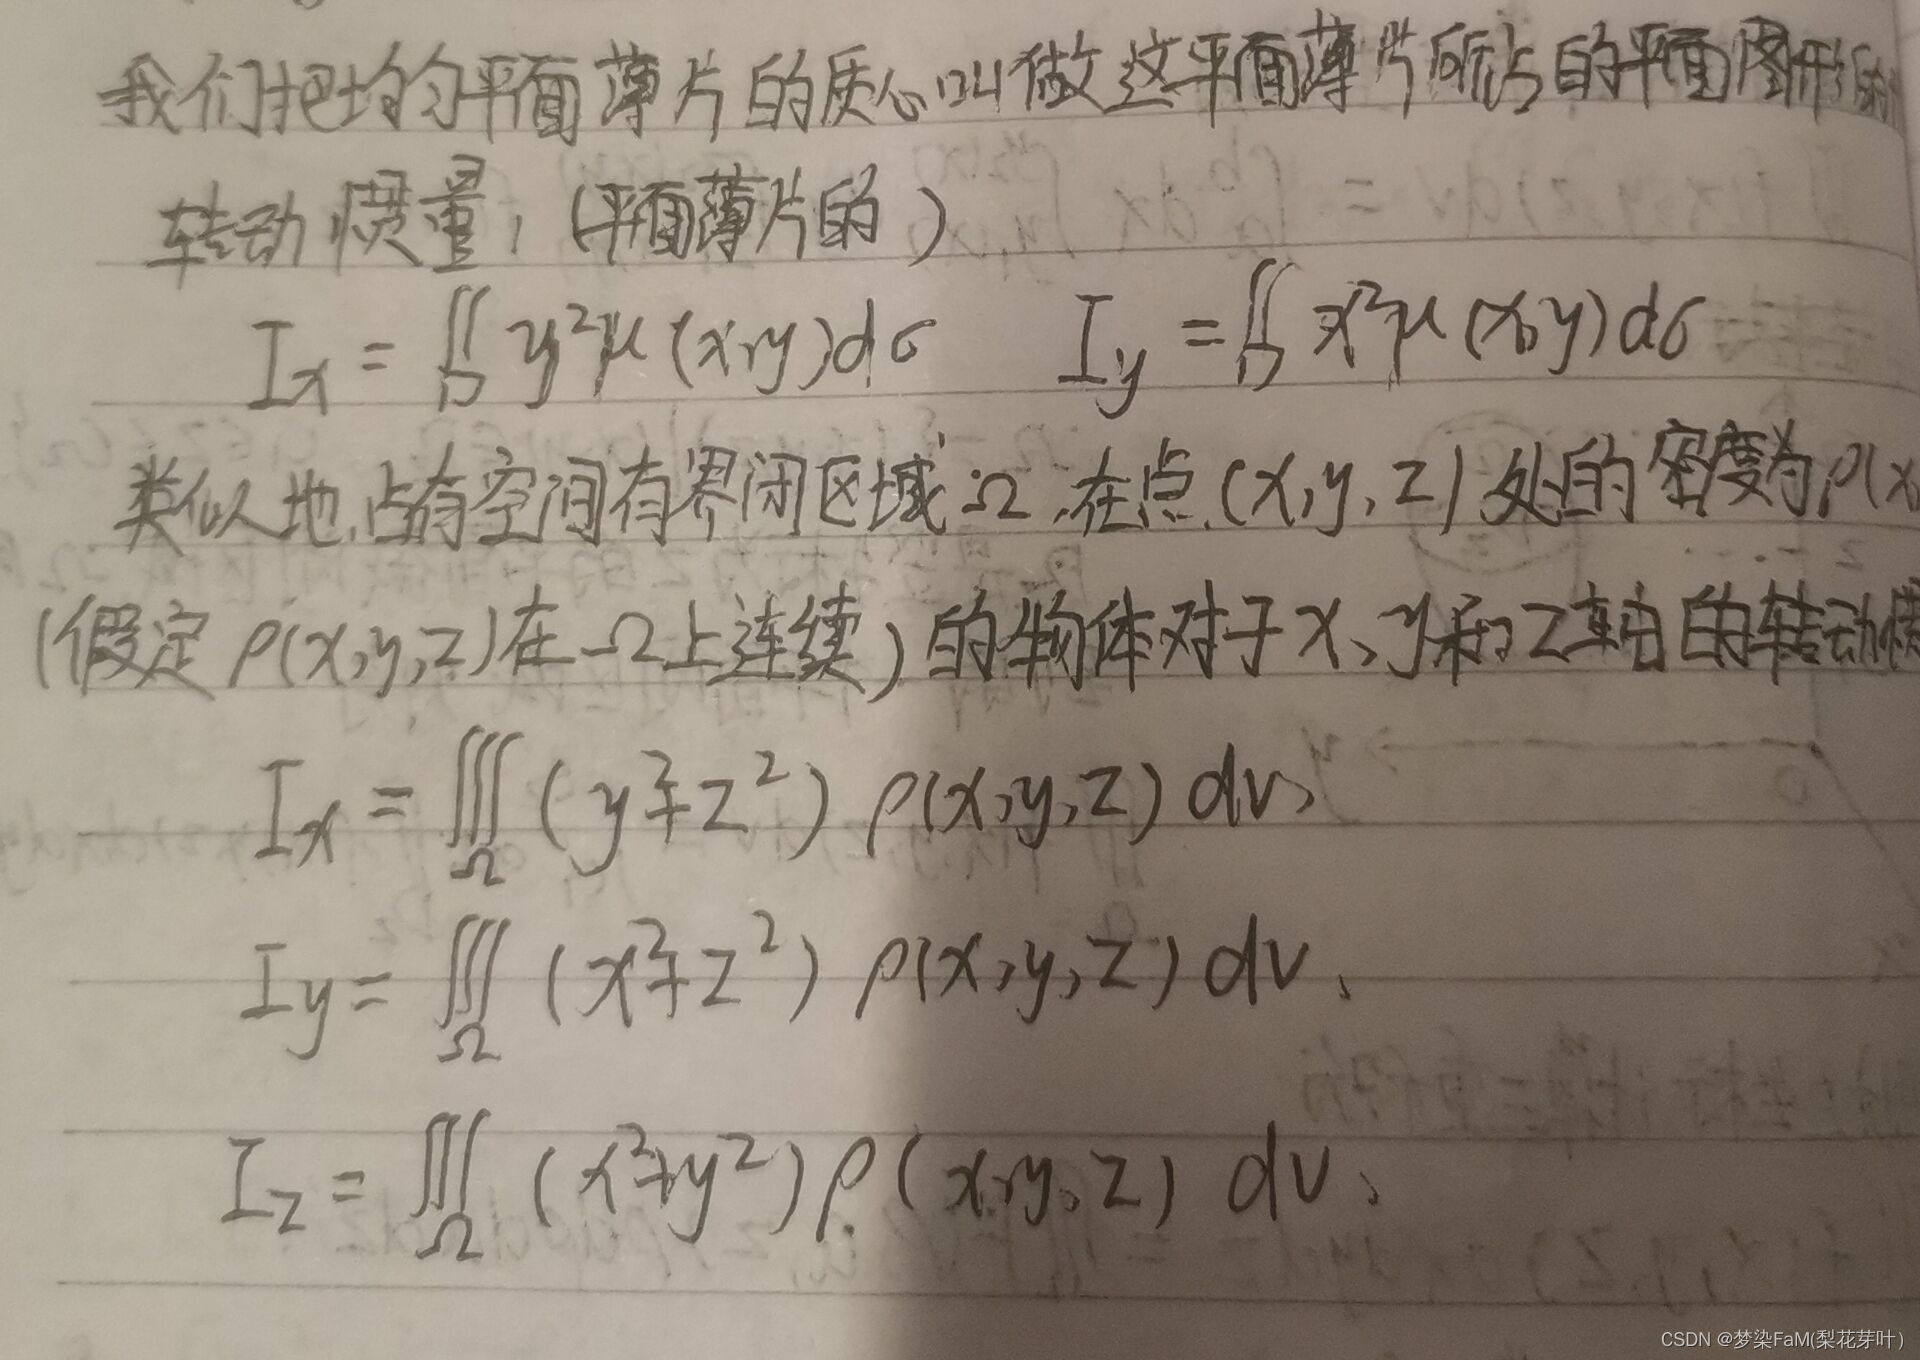 我们把均匀平面薄片的质心叫做这平面薄片所占的平面图形的
转动惯量，(平面薄片的 )
Ix = ∬D y²μ(x,y)dσ Iy = ∬D x²μ(x,y)dσ
类似地，占有空间有界闭区域Ω，在点(x,y,z)处的密度为ρ(x
(假定ρ(x,y,z)在Ω上连续)的物体对于x、y和z轴的转动惯
Ix = ∭Ω (y²+z²) ρ(x,y,z) dv,
Iy = ∭Ω (x²+z²) ρ(x,y,z) dv,
Iz = ∭Ω (x²+y²) ρ(x,y,z) dv,
CSDN @梦染FaM(梨花芽叶)